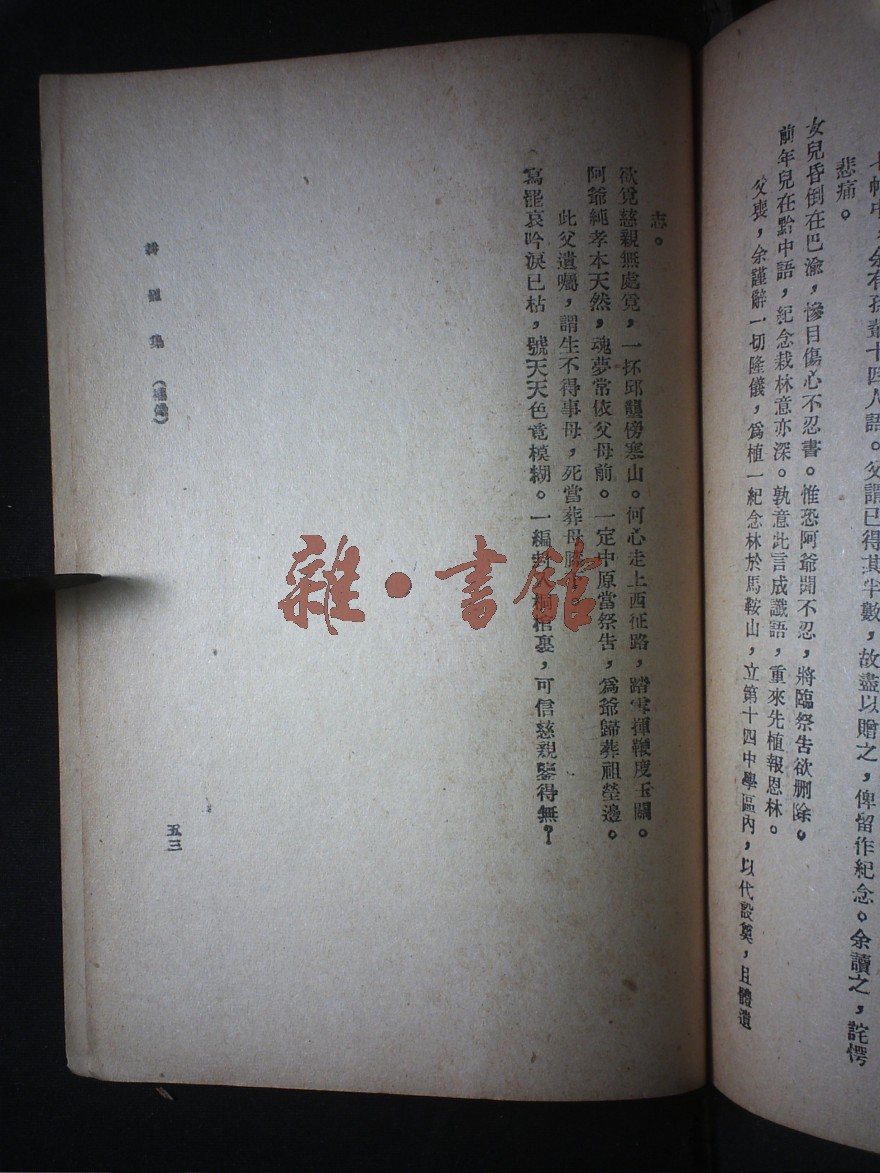 中，余有孫輩十四人語。父謂已得其半數，故盡以贈之，俾留作紀念。余讀之，詫愕
悲痛。
女兒昏倒在巴渝，慘目傷心不忍書。惟恐阿爺聞不忍，將臨祭告欲刪除。
前年兒在黔中語，紀念栽林意亦深。孰意此言成讖語，重來先植報恩林。
父喪，余謹辭一切隆儀，爲植一紀念林於馬鞍山，立第十四中學區內，以代設奠，且體遺
志。
欲覓慈親無處覓，一抔邱壟傍寒山。何心走上西征路，踏雪揮鞭度玉關。
阿爺純孝本天然，魂夢常依父母前。一定中原當祭告，爲爺歸葬祖塋邊。
此父遺囑，謂生不得事母，死當葬母
寫罷哀吟淚已枯，號天天色竟模糊。一編封 棺裏，可信慈親鑒得無！
集 （補
五三
雜·書館